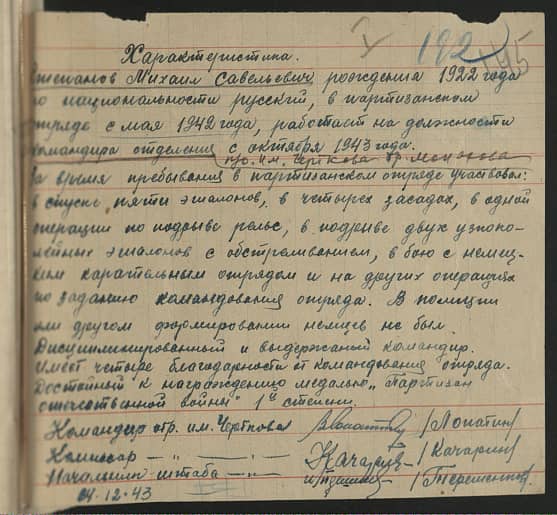 V 192 195
Характеристика.
Степанов Михаил Савельевич, рождения 1922 года
по национальности русский, в партизанском
отряде с мая 1942 года, работает на должности
командира отделения с октября 1943 года.
отр. им. Черткова бр.
За время пребывания в партизанском отряде участвовал:
в спуске пяти эшалонов, в четырех засадах, в одной
операции по подрыве рельс, в подрыве двух узкоко-
лейных эшалонов с обстреливанием, в бою с немец-
ким карательным отрядом и на других операциях
по заданию командования отряда. В полиции
или другом формировании немцев не был.
Дисциплинированный и выдержаный командир.
Имеет четыре благодарности от командования отряда.
Достойный к награждению медалью „Партизан
отечественной войны" 1й степени.
Командир отр. им. Черткова /Лопатин/
Комиссар — „ — /Качарин/
Начальник штаба — „ —
04.12.43